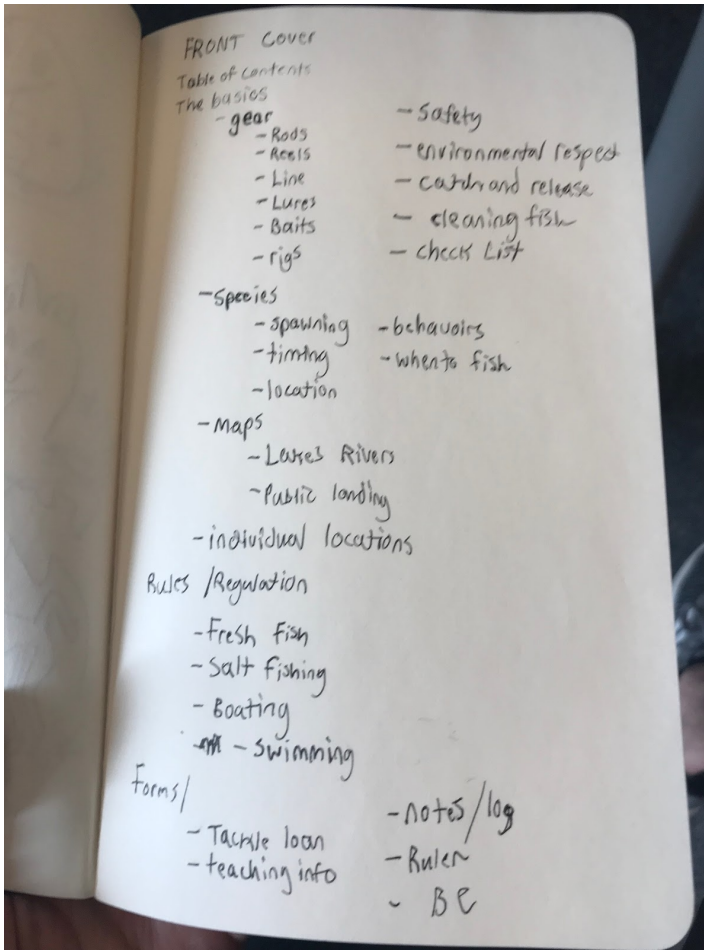 FRONT Cover
Table of contents
The basics
- gear
- Rods
- Reels
- Line
- Lures
- Baits
- rigs
- Safety
- environmental respect
- catch and release
- cleaning fish
- Check List
- Species
- spawning
- timing
- location
- behavoirs
- when to fish
- Maps
- Lakes Rivers
- Public landing
- individual locations
Rules / Regulation
- Fresh fish
- Salt fishing
- Boating
- Swimming
Forms /
- Tackle loan
- teaching info
- notes / log
- Ruler
- BC